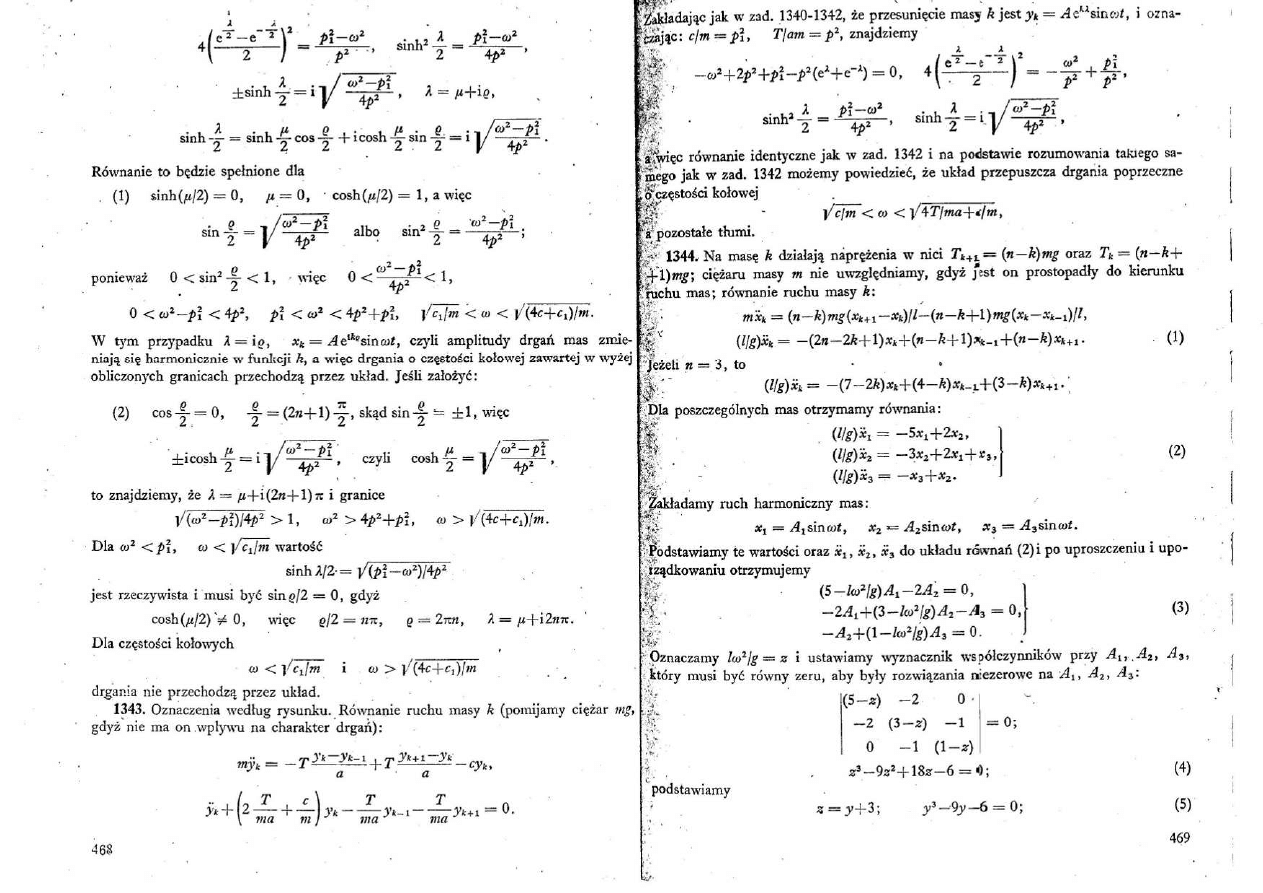 4((e^{λ/2}−e^{−λ/2})/2)² = (p₁²−ω²)/p², sinh² λ/2 = (p₁²−ω²)/4p²,
±sinh λ/2 = i√((ω²−p₁²)/4p²), λ = μ+iϱ,
sinh λ/2 = sinh μ/2 cos ϱ/2 + i cosh μ/2 sin ϱ/2 = i√((ω²−p₁²)/4p²).
Równanie to będzie spełnione dla
(1) sinh(μ/2) = 0, μ = 0, cosh(μ/2) = 1, a więc
sin ϱ/2 = √((ω²−p₁²)/4p²) albo sin² ϱ/2 = (ω²−p₁²)/4p²;
ponieważ 0 < sin² ϱ/2 < 1, więc 0 < (ω²−p₁²)/4p² < 1,
0 < ω²−p₁² < 4p², p₁² < ω² < 4p²+p₁², √(c₁/m) < ω < √((4c+c₁)/m).
W tym przypadku λ = iϱ, xₖ = Ae^{ikϱ}sin ωt, czyli amplitudy drgań mas zmie-
niają się harmonicznie w funkcji k, a więc drgania o częstości kołowej zawartej w wyżej
obliczonych granicach przechodzą przez układ. Jeśli założyć:
(2) cos ϱ/2 = 0, ϱ/2 = (2n+1) π/2, skąd sin ϱ/2 = ±1, więc
±i cosh μ/2 = i√((ω²−p₁²)/4p²), czyli cosh μ/2 = √((ω²−p₁²)/4p²),
to znajdziemy, że λ = μ+i(2n+1)π i granice
√((ω²−p₁²)/4p²) > 1, ω² > 4p²+p₁², ω > √((4c+c₁)/m).
Dla ω² < p₁², ω < √(c₁/m) wartość
sinh λ/2 = √((p₁²−ω²)/4p²)
jest rzeczywista i musi być sin ϱ/2 = 0, gdyż
cosh(μ/2) ≠ 0, więc ϱ/2 = nπ, ϱ = 2πn, λ = μ+i2nπ.
Dla częstości kołowych
ω < √(c₁/m) i ω > √((4c+c₁)/m)
drgania nie przechodzą przez układ.
1343. Oznaczenia według rysunku. Równanie ruchu masy k (pomijamy ciężar mg,
gdyż nie ma on wpływu na charakter drgań):
mÿₖ = −T (yₖ−yₖ₋₁)/a + T (yₖ₊₁−yₖ)/a − cyₖ,
ÿₖ + (2 T/ma + c/m) yₖ − T/ma yₖ₋₁ − T/ma yₖ₊₁ = 0.
468
Zakładając jak w zad. 1340-1342, że przesunięcie masy k jest yₖ = Ae^{kλ}sin ωt, i ozna-
czając: c/m = p₁², T/am = p², znajdziemy
−ω²+2p²+p₁²−p²(e^λ+e^{−λ}) = 0, 4((e^{λ/2}−e^{−λ/2})/2)² = −ω²/p² + p₁²/p²,
sinh² λ/2 = (p₁²−ω²)/4p², sinh λ/2 = i√((ω²−p₁²)/4p²),
a więc równanie identyczne jak w zad. 1342 i na podstawie rozumowania takiego sa-
mego jak w zad. 1342 możemy powiedzieć, że układ przepuszcza drgania poprzeczne
o częstości kołowej
√(c/m) < ω < √(4T/ma+c/m),
a pozostałe tłumi.
1344. Na masę k działają naprężenia w nici Tₖ₊₁ = (n−k)mg oraz Tₖ = (n−k+
+1)mg; ciężaru masy m nie uwzględniamy, gdyż jest on prostopadły do kierunku
ruchu mas; równanie ruchu masy k:
mẍₖ = (n−k)mg(xₖ₊₁−xₖ)/l−(n−k+1)mg(xₖ−xₖ₋₁)/l,
(l/g)ẍₖ = −(2n−2k+1)xₖ+(n−k+1)xₖ₋₁+(n−k)xₖ₊₁. (1)
Jeżeli n = 3, to
(l/g)ẍₖ = −(7−2k)xₖ+(4−k)xₖ₋₁+(3−k)xₖ₊₁.
Dla poszczególnych mas otrzymamy równania:
(l/g)ẍ₁ = −5x₁+2x₂,
(l/g)ẍ₂ = −3x₂+2x₁+x₃, (2)
(l/g)ẍ₃ = −x₃+x₂.
Zakładamy ruch harmoniczny mas:
x₁ = A₁sin ωt, x₂ = A₂sin ωt, x₃ = A₃sin ωt.
Podstawiamy te wartości oraz ẍ₁, ẍ₂, ẍ₃ do układu równań (2) i po uproszczeniu i upo-
rządkowaniu otrzymujemy
(5−lω²/g)A₁−2A₂ = 0,
−2A₁+(3−lω²/g)A₂−A₃ = 0, (3)
−A₂+(1−lω²/g)A₃ = 0.
Oznaczamy lω²/g = z i ustawiamy wyznacznik współczynników przy A₁, A₂, A₃,
który musi być równy zeru, aby były rozwiązania niezerowe na A₁, A₂, A₃:
|(5−z) −2 0|
|−2 (3−z) −1| = 0;
|0 −1 (1−z)|
z³−9z²+18z−6 = 0; (4)
podstawiamy
z = y+3; y³−9y−6 = 0; (5)
469